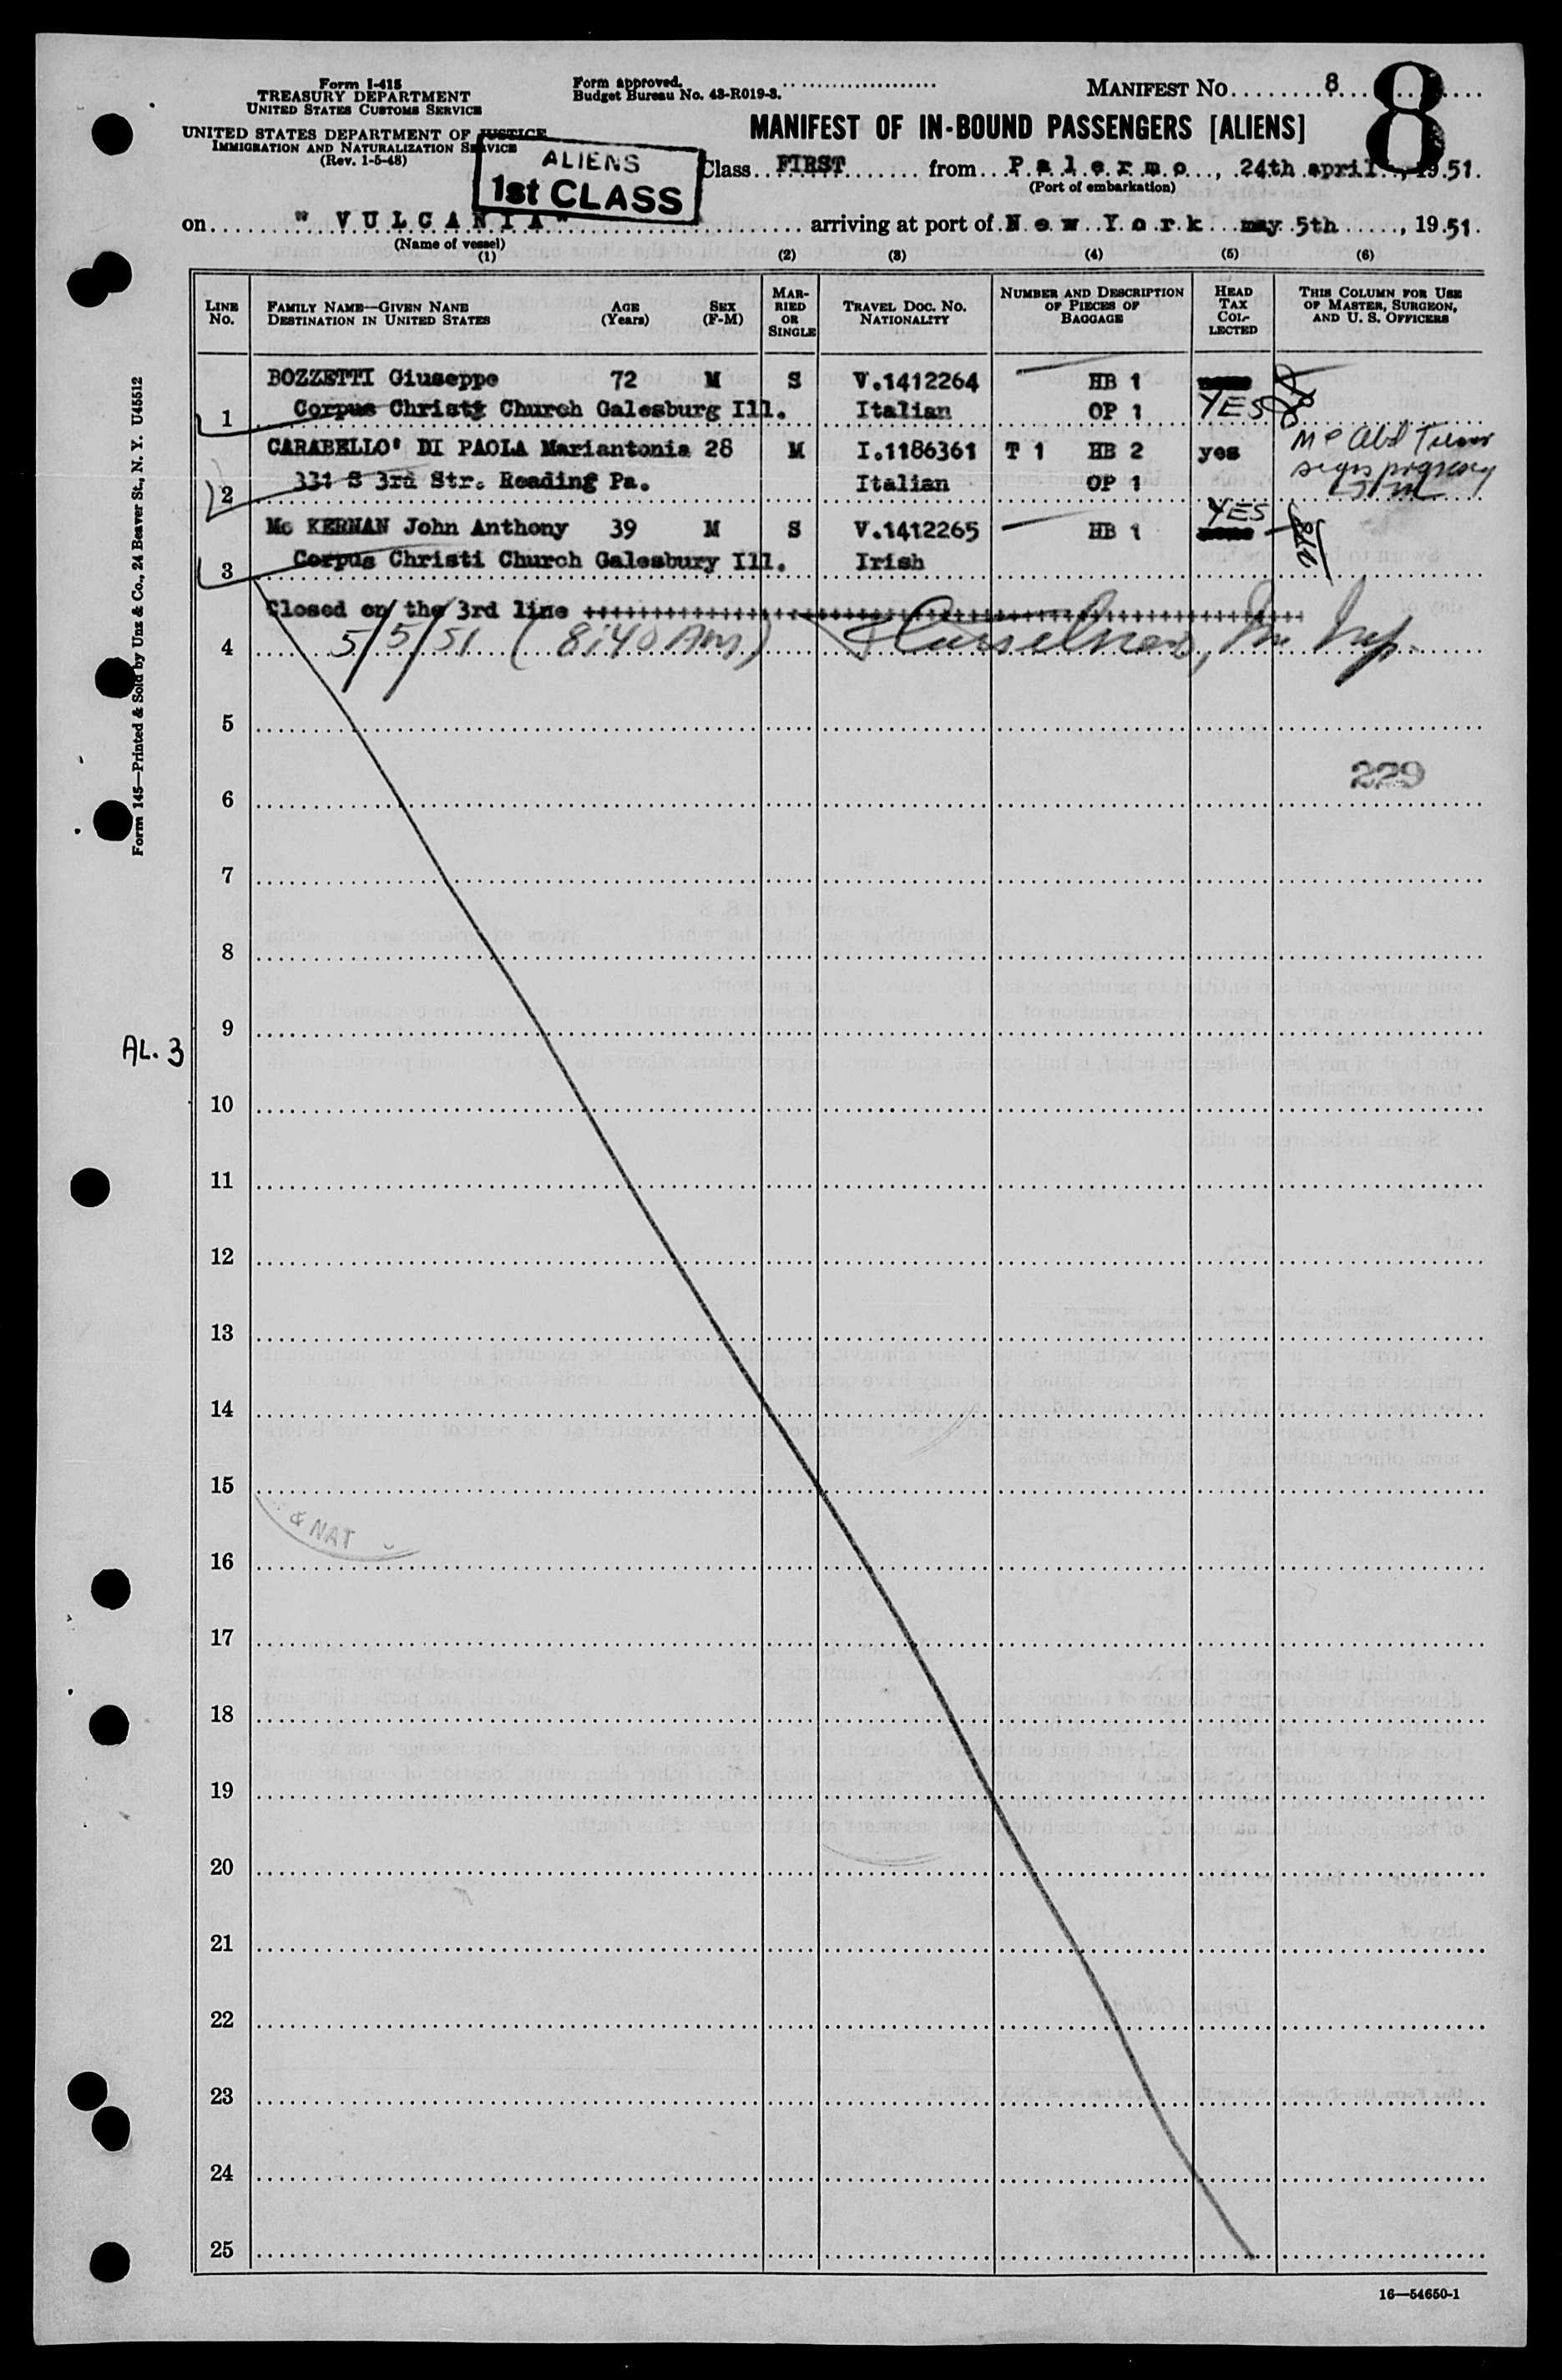 Form I-415
TREASURY DEPARTMENT
UNITED STATES CUSTOMS SERVICE
UNITED STATES DEPARTMENT OF JUSTICE
IMMIGRATION AND NATURALIZATION SERVICE
(Rev. 1-5-48)
Form approved.
Budget Bureau No. 43-R019-3.
MANIFEST NO. 8
8
MANIFEST OF IN-BOUND PASSENGERS [ALIENS]
ALIENS
1st CLASS
Class FIRST from Palermo, 24th april, 1951.
(Port of embarkation)
on "VULCANIA" arriving at port of New York may 5th, 1951.
(Name of vessel)
(1) (2) (3) (4) (5) (6)
LINE No. FAMILY NAME—GIVEN NANE DESTINATION IN UNITED STATES AGE (Years) SEX (F-M) MARRIED OR SINGLE TRAVEL DOC. NO. NATIONALITY NUMBER AND DESCRIPTION OF PIECES OF BAGGAGE HEAD TAX COLLECTED THIS COLUMN FOR USE OF MASTER, SURGEON, AND U. S. OFFICERS
BOZZETTI Giuseppe 72 M S V.1412264 HB 1
1 Corpus Christi Church Galesburg Ill. Italian OP 1 YES
CARABELLO' DI PAOLA Mariantonia 28 M I.1186361 T 1 HB 2 yes
2 331 S 3rd Str. Reading Pa. Italian OP 1
Mc KERNAN John Anthony 39 M S V.1412265 HB 1 YES
3 Corpus Christi Church Galesbury Ill. Irish
Closed on the 3rd line ++++++++++++++++++++++++++++++++++++++++++++++++
4 5/5/51 (8:40 AM)
5
229
6
7
8
9
AL. 3
10
11
12
13
14
15
& NAT
16
17
18
19
20
21
22
23
24
25
16—54650-1
Form 145—Printed & Sold by Unz & Co., 24 Beaver St., N. Y. U45512